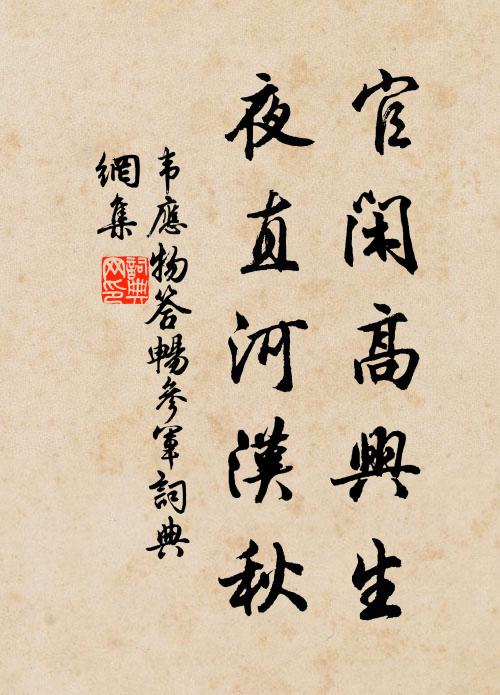 官閑高興生
夜直河漢秋
韦應物答暢參軍詞典
網集
詞典網印